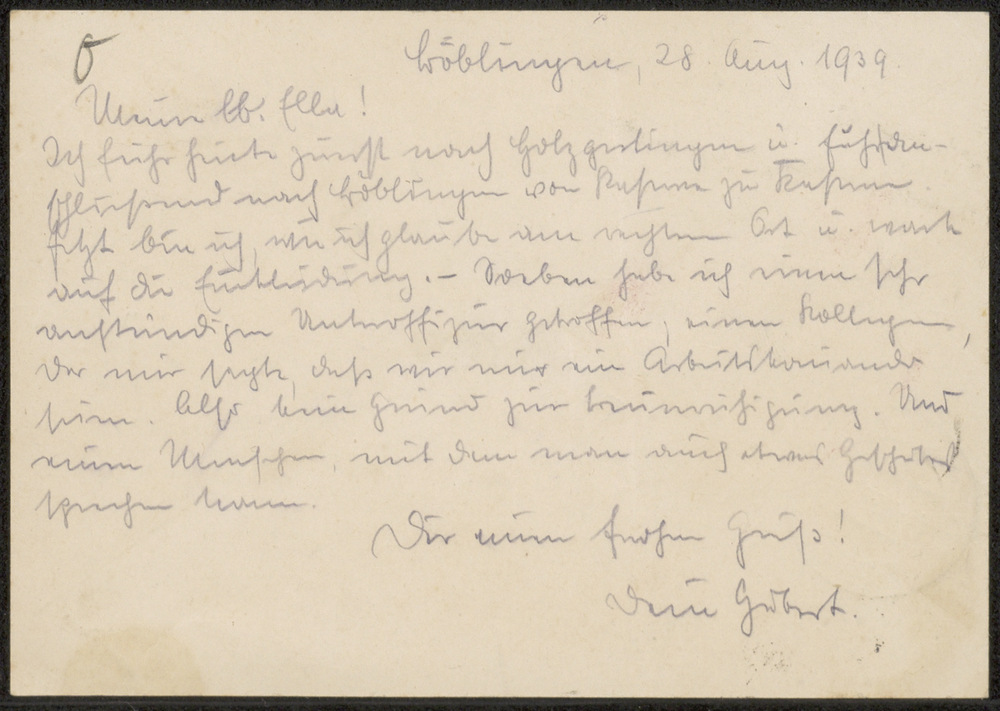 Böblingen, 28. Aug. 1939.
Meine lb. Ella!
Ich fuhr heute zuerst nach Holzgerlingen u. fuhr an-
schliessend nach Böblingen von Kaserne zu Kaserne.
Jetzt bin ich, wie ich glaube am rechten Ort u. warte
auf die Einkleidung. – Soeben habe ich einen sehr
anständigen Unteroffizier getroffen, einen Kollegen,
der mir sagte, daß wir nur ein Arbeitskommando
seien. Also kein Grund zur Beunruhigung. Und
einen Menschen, mit dem man auch etwas Gescheites
sprechen kann.
Dir einen frohen Gruß!
Dein Hubert.